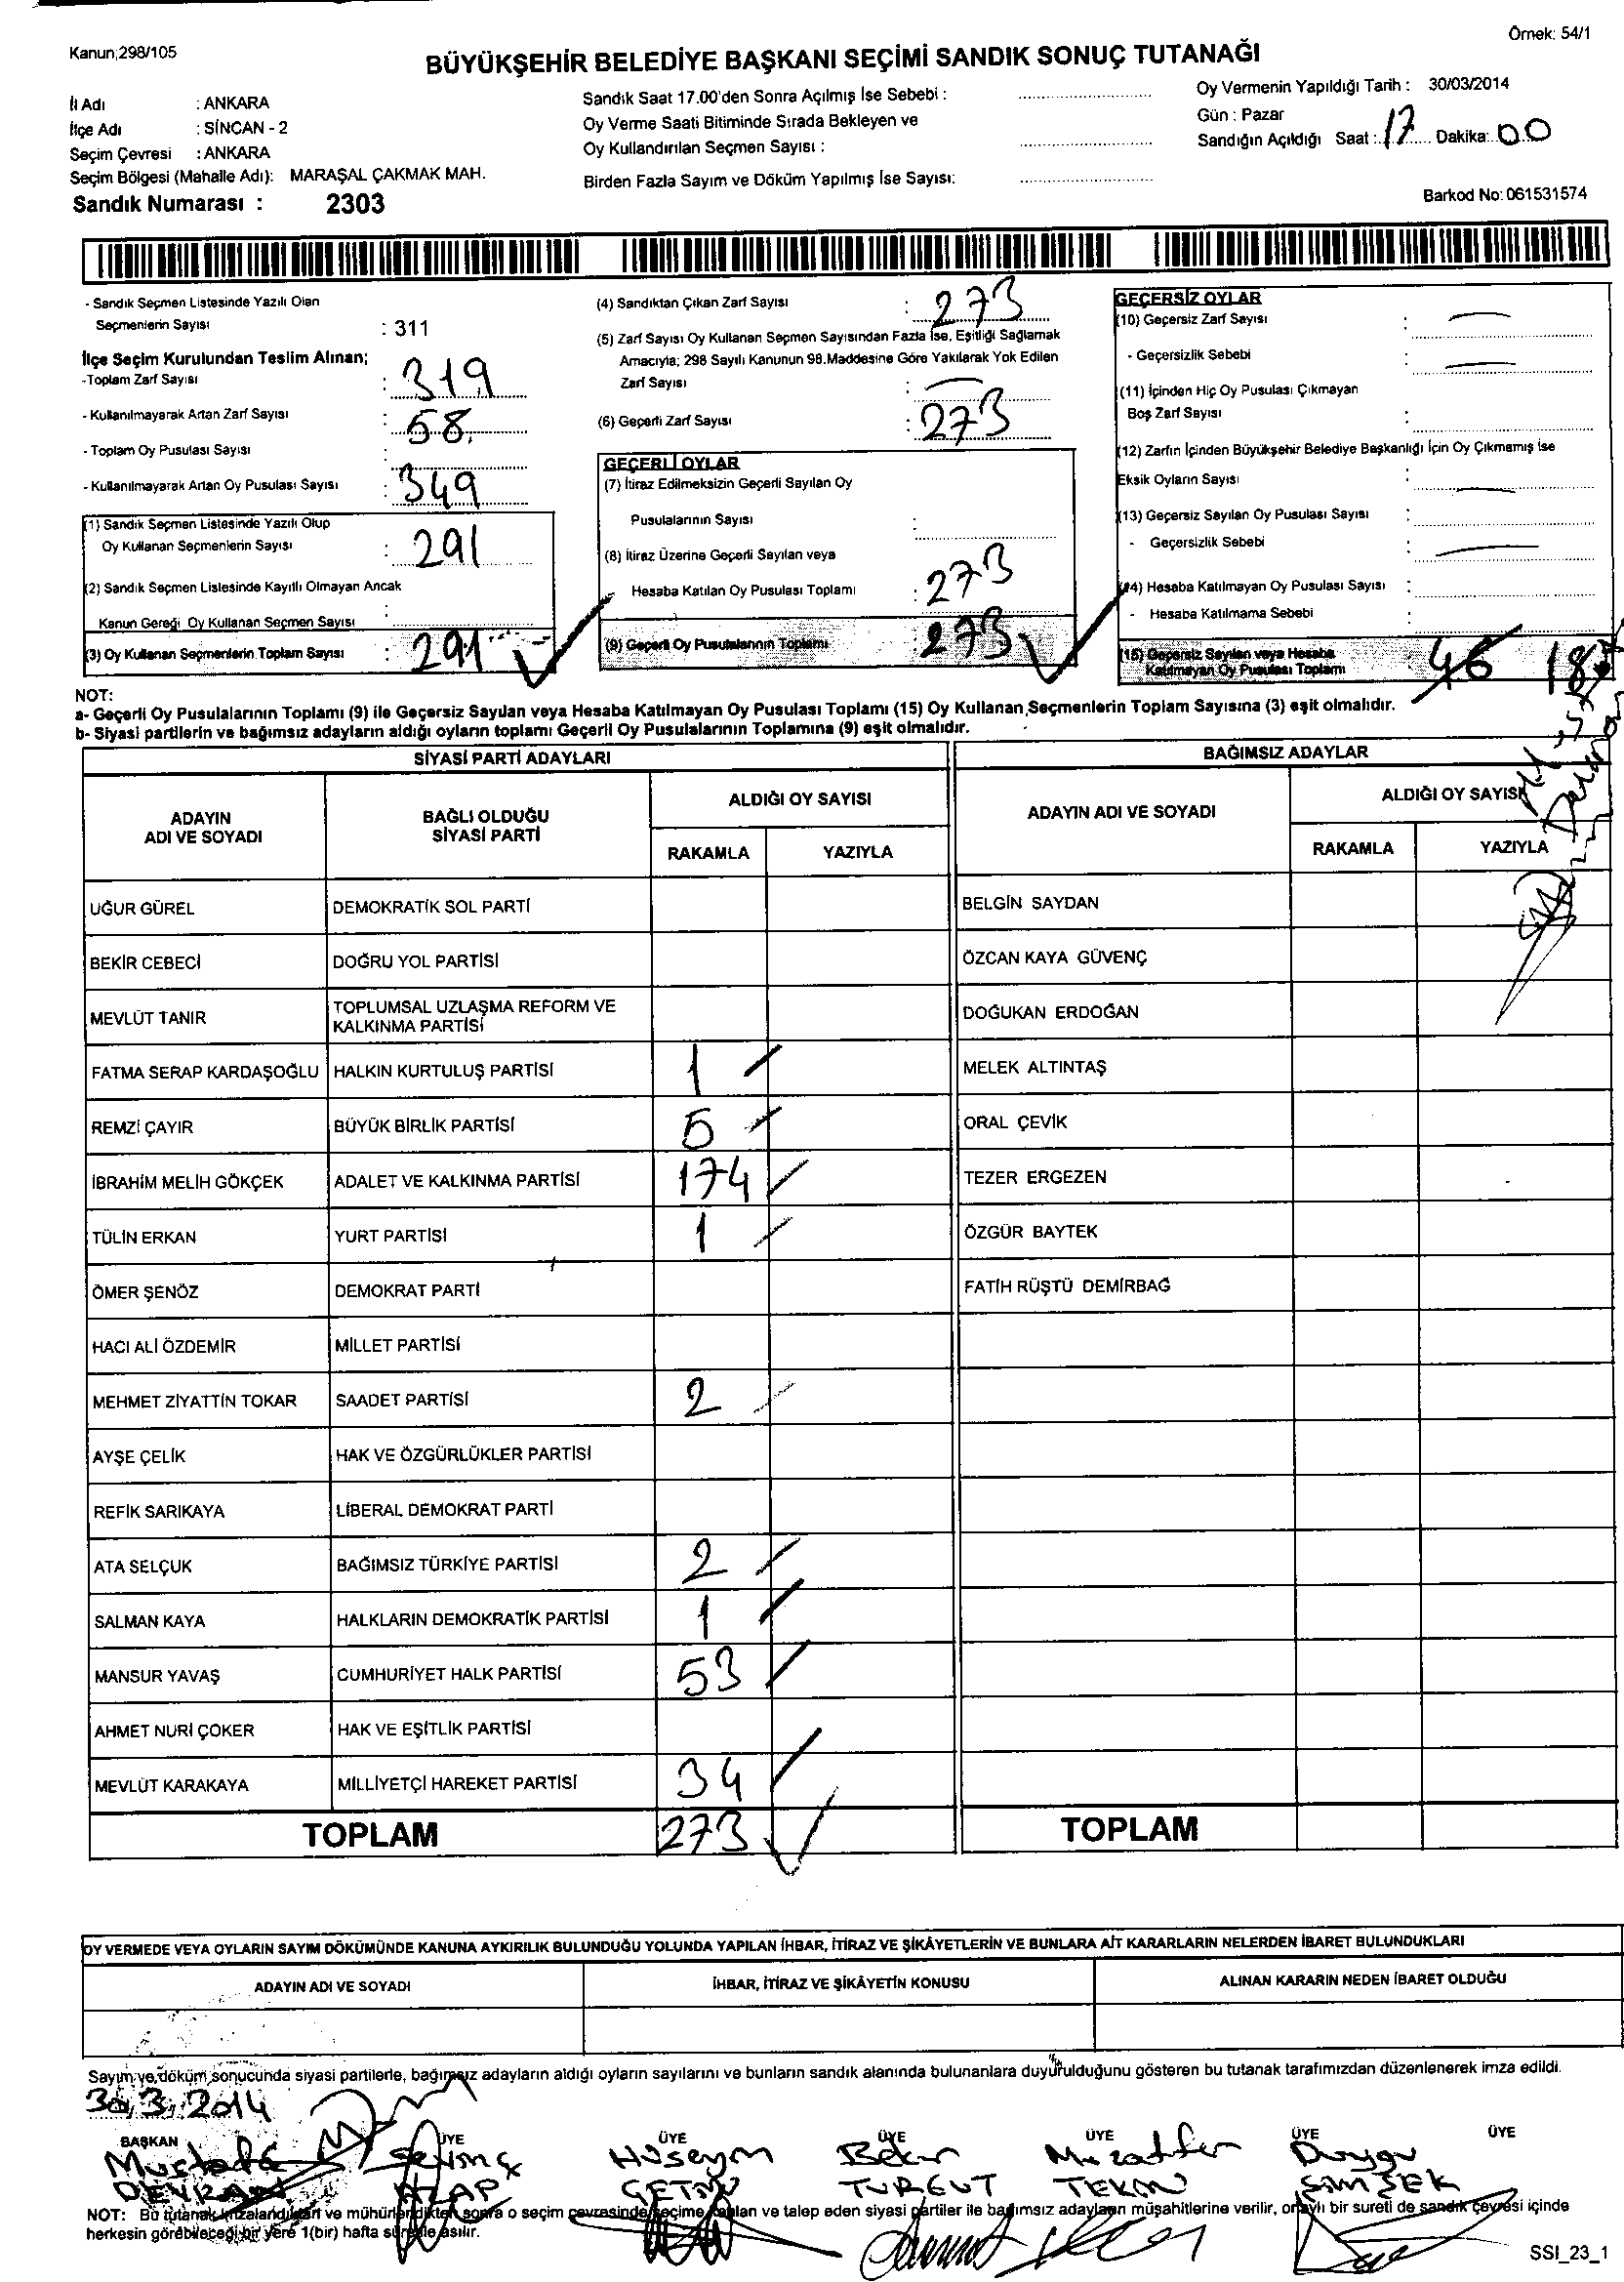 Kanun;298/105
Örnek: 54/1
BÜYÜKŞEHİR BELEDİYE BAŞKANI SEÇİMİ SANDIK SONUÇ TUTANAĞI
İl Adı : ANKARA
İlçe Adı : SİNCAN - 2
Seçim Çevresi : ANKARA
Seçim Bölgesi (Mahalle Adı): MARAŞAL ÇAKMAK MAH.
Sandık Numarası : 2303
Sandık Saat 17.00'den Sonra Açılmış İse Sebebi :
Oy Verme Saati Bitiminde Sırada Bekleyen ve
Oy Kullandırılan Seçmen Sayısı :
Birden Fazla Sayım ve Döküm Yapılmış İse Sayısı:
Oy Vermenin Yapıldığı Tarih : 30/03/2014
Gün : Pazar
Sandığın Açıldığı Saat : 17 Dakika: 00
Barkod No: 061531574
- Sandık Seçmen Listesinde Yazılı Olan
Seçmenlerin Sayısı : 311
İlçe Seçim Kurulundan Teslim Alınan;
-Toplam Zarf Sayısı : 319
- Kullanılmayarak Artan Zarf Sayısı : 58
- Toplam Oy Pusulası Sayısı :
- Kullanılmayarak Artan Oy Pusulası Sayısı : 349
(1) Sandık Seçmen Listesinde Yazılı Olup
Oy Kullanan Seçmenlerin Sayısı : 291
(2) Sandık Seçmen Listesinde Kayıtlı Olmayan Ancak
Kanun Gereği Oy Kullanan Seçmen Sayısı :
(3) Oy Kullanan Seçmenlerin Toplam Sayısı : 291
(4) Sandıktan Çıkan Zarf Sayısı : 273
(5) Zarf Sayısı Oy Kullanan Seçmen Sayısından Fazla İse, Eşitliği Sağlamak
Amacıyla; 298 Sayılı Kanunun 98.Maddesine Göre Yakılarak Yok Edilen
Zarf Sayısı : —
(6) Geçerli Zarf Sayısı : 273
GEÇERLİ OYLAR
(7) İtiraz Edilmeksizin Geçerli Sayılan Oy
Pusulalarının Sayısı :
(8) İtiraz Üzerine Geçerli Sayılan veya
Hesaba Katılan Oy Pusulası Toplamı : 273
(9) Geçerli Oy Pusulalarının Toplamı 273
GEÇERSİZ OYLAR
(10) Geçersiz Zarf Sayısı : —
- Geçersizlik Sebebi : —
(11) İçinden Hiç Oy Pusulası Çıkmayan
Boş Zarf Sayısı :
(12) Zarfın İçinden Büyükşehir Belediye Başkanlığı İçin Oy Çıkmamış İse
Eksik Oyların Sayısı : —
(13) Geçersiz Sayılan Oy Pusulası Sayısı :
- Geçersizlik Sebebi : —
(14) Hesaba Katılmayan Oy Pusulası Sayısı :
- Hesaba Katılmama Sebebi :
(15) Geçersiz Sayılan veya Hesaba
Katılmayan Oy Pusulası Toplamı 46 18
NOT:
a- Geçerli Oy Pusulalarının Toplamı (9) ile Geçersiz Sayılan veya Hesaba Katılmayan Oy Pusulası Toplamı (15) Oy Kullanan Seçmenlerin Toplam Sayısına (3) eşit olmalıdır.
b- Siyasi partilerin ve bağımsız adayların aldığı oyların toplamı Geçerli Oy Pusulalarının Toplamına (9) eşit olmalıdır.
SİYASİ PARTİ ADAYLARI
ADAYIN ADI VE SOYADI
BAĞLI OLDUĞU SİYASİ PARTİ
ALDIĞI OY SAYISI
RAKAMLA YAZIYLA
UĞUR GÜREL DEMOKRATİK SOL PARTİ
BEKİR CEBECİ DOĞRU YOL PARTİSİ
MEVLÜT TANIR TOPLUMSAL UZLAŞMA REFORM VE KALKINMA PARTİSİ
FATMA SERAP KARDAŞOĞLU HALKIN KURTULUŞ PARTİSİ 1
REMZİ ÇAYIR BÜYÜK BİRLİK PARTİSİ 5
İBRAHİM MELİH GÖKÇEK ADALET VE KALKINMA PARTİSİ 174
TÜLİN ERKAN YURT PARTİSİ 1
ÖMER ŞENÖZ DEMOKRAT PARTİ
HACI ALİ ÖZDEMİR MİLLET PARTİSİ
MEHMET ZİYATTİN TOKAR SAADET PARTİSİ 2
AYŞE ÇELİK HAK VE ÖZGÜRLÜKLER PARTİSİ
REFİK SARIKAYA LİBERAL DEMOKRAT PARTİ
ATA SELÇUK BAĞIMSIZ TÜRKİYE PARTİSİ 2
SALMAN KAYA HALKLARIN DEMOKRATİK PARTİSİ 1
MANSUR YAVAŞ CUMHURİYET HALK PARTİSİ 53
AHMET NURİ ÇOKER HAK VE EŞİTLİK PARTİSİ
MEVLÜT KARAKAYA MİLLİYETÇİ HAREKET PARTİSİ 34
TOPLAM 273
BAĞIMSIZ ADAYLAR
ADAYIN ADI VE SOYADI
ALDIĞI OY SAYISI
RAKAMLA YAZIYLA
BELGİN SAYDAN
ÖZCAN KAYA GÜVENÇ
DOĞUKAN ERDOĞAN
MELEK ALTINTAŞ
ORAL ÇEVİK
TEZER ERGEZEN
ÖZGÜR BAYTEK
FATİH RÜŞTÜ DEMİRBAĞ
TOPLAM
OY VERMEDE VEYA OYLARIN SAYIM DÖKÜMÜNDE KANUNA AYKIRILIK BULUNDUĞU YOLUNDA YAPILAN İHBAR, İTİRAZ VE ŞİKÂYETLERİN VE BUNLARA AİT KARARLARIN NELERDEN İBARET BULUNDUKLARI
ADAYIN ADI VE SOYADI İHBAR, İTİRAZ VE ŞİKÂYETİN KONUSU ALINAN KARARIN NEDEN İBARET OLDUĞU
Sayım ve döküm sonucunda siyasi partilerle, bağımsız adayların aldığı oyların sayılarını ve bunların sandık alanında bulunanlara duyurulduğunu gösteren bu tutanak tarafımızdan düzenlenerek imza edildi.
30.3.2014
BAŞKAN ÜYE ÜYE ÜYE ÜYE ÜYE ÜYE
Mustafa Hüseyin Bekir Muzaffer Duygu
TURGUT TEKİN ŞİMŞEK
NOT: Bu tutanak imzalandıktan ve mühürlendikten sonra o seçim çevresinde seçime katılan ve talep eden siyasi partiler ile bağımsız adayların müşahitlerine verilir, onaylı bir sureti de sandık çevresi içinde
herkesin görebileceği bir yere 1(bir) hafta süreyle asılır.
SSI_23_1